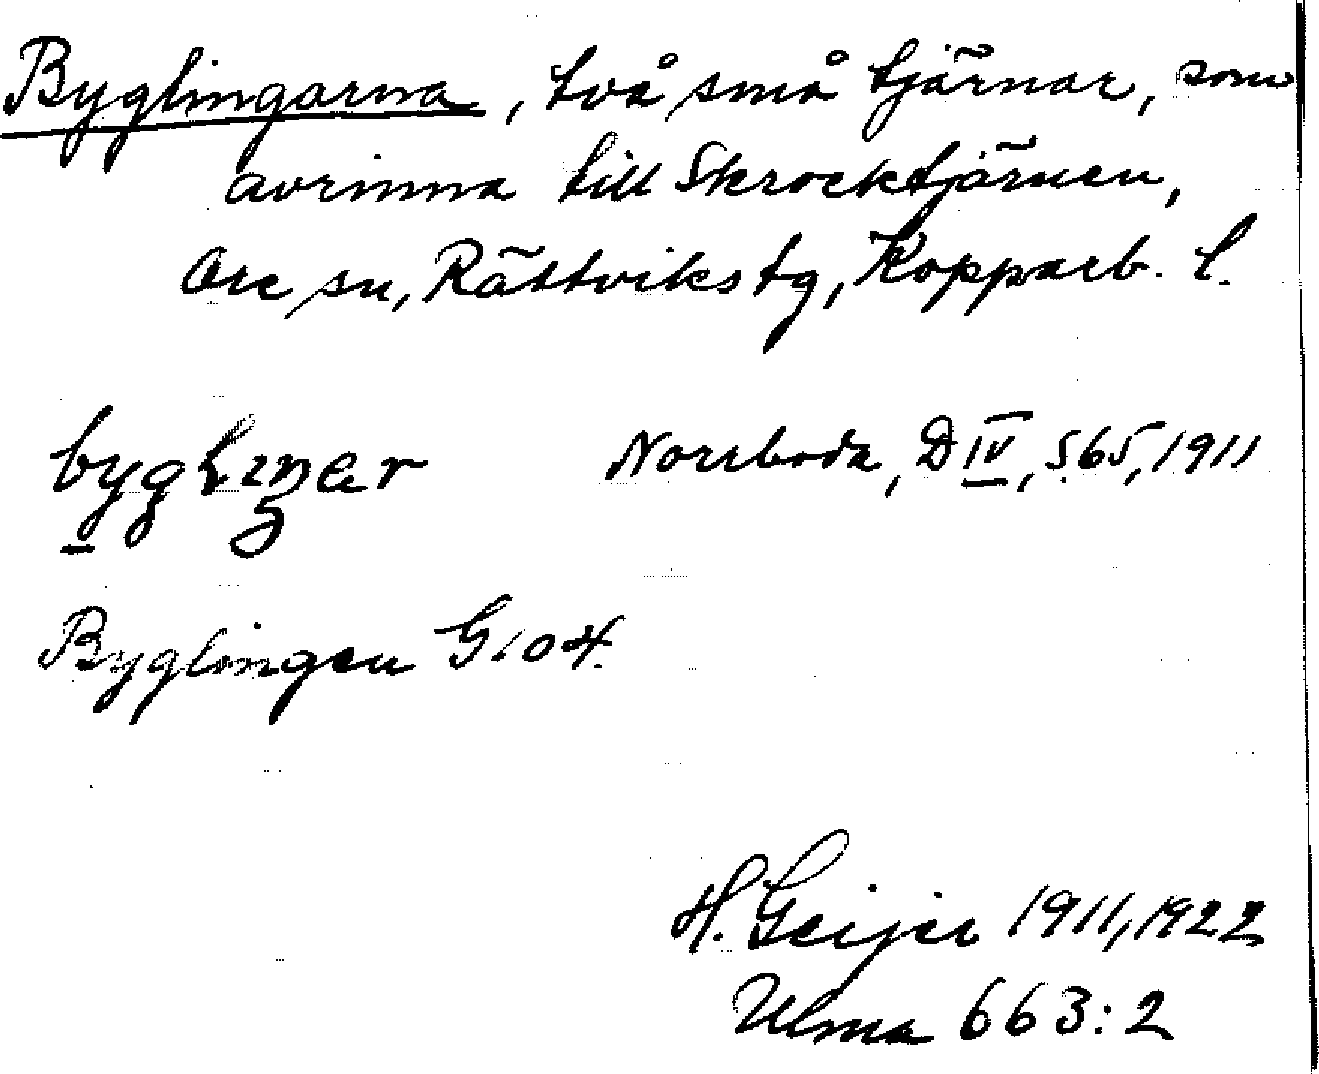 Byglingarna, två små tjärnar, som
avrinna till Skrocktjärnen,
Ore sn, Rättviks tg, Kopparb. l.
Norrboda, D IV, S65, 1911
Byglingen G104.
H. Geijer 1911, 1922
Ulma 663:2